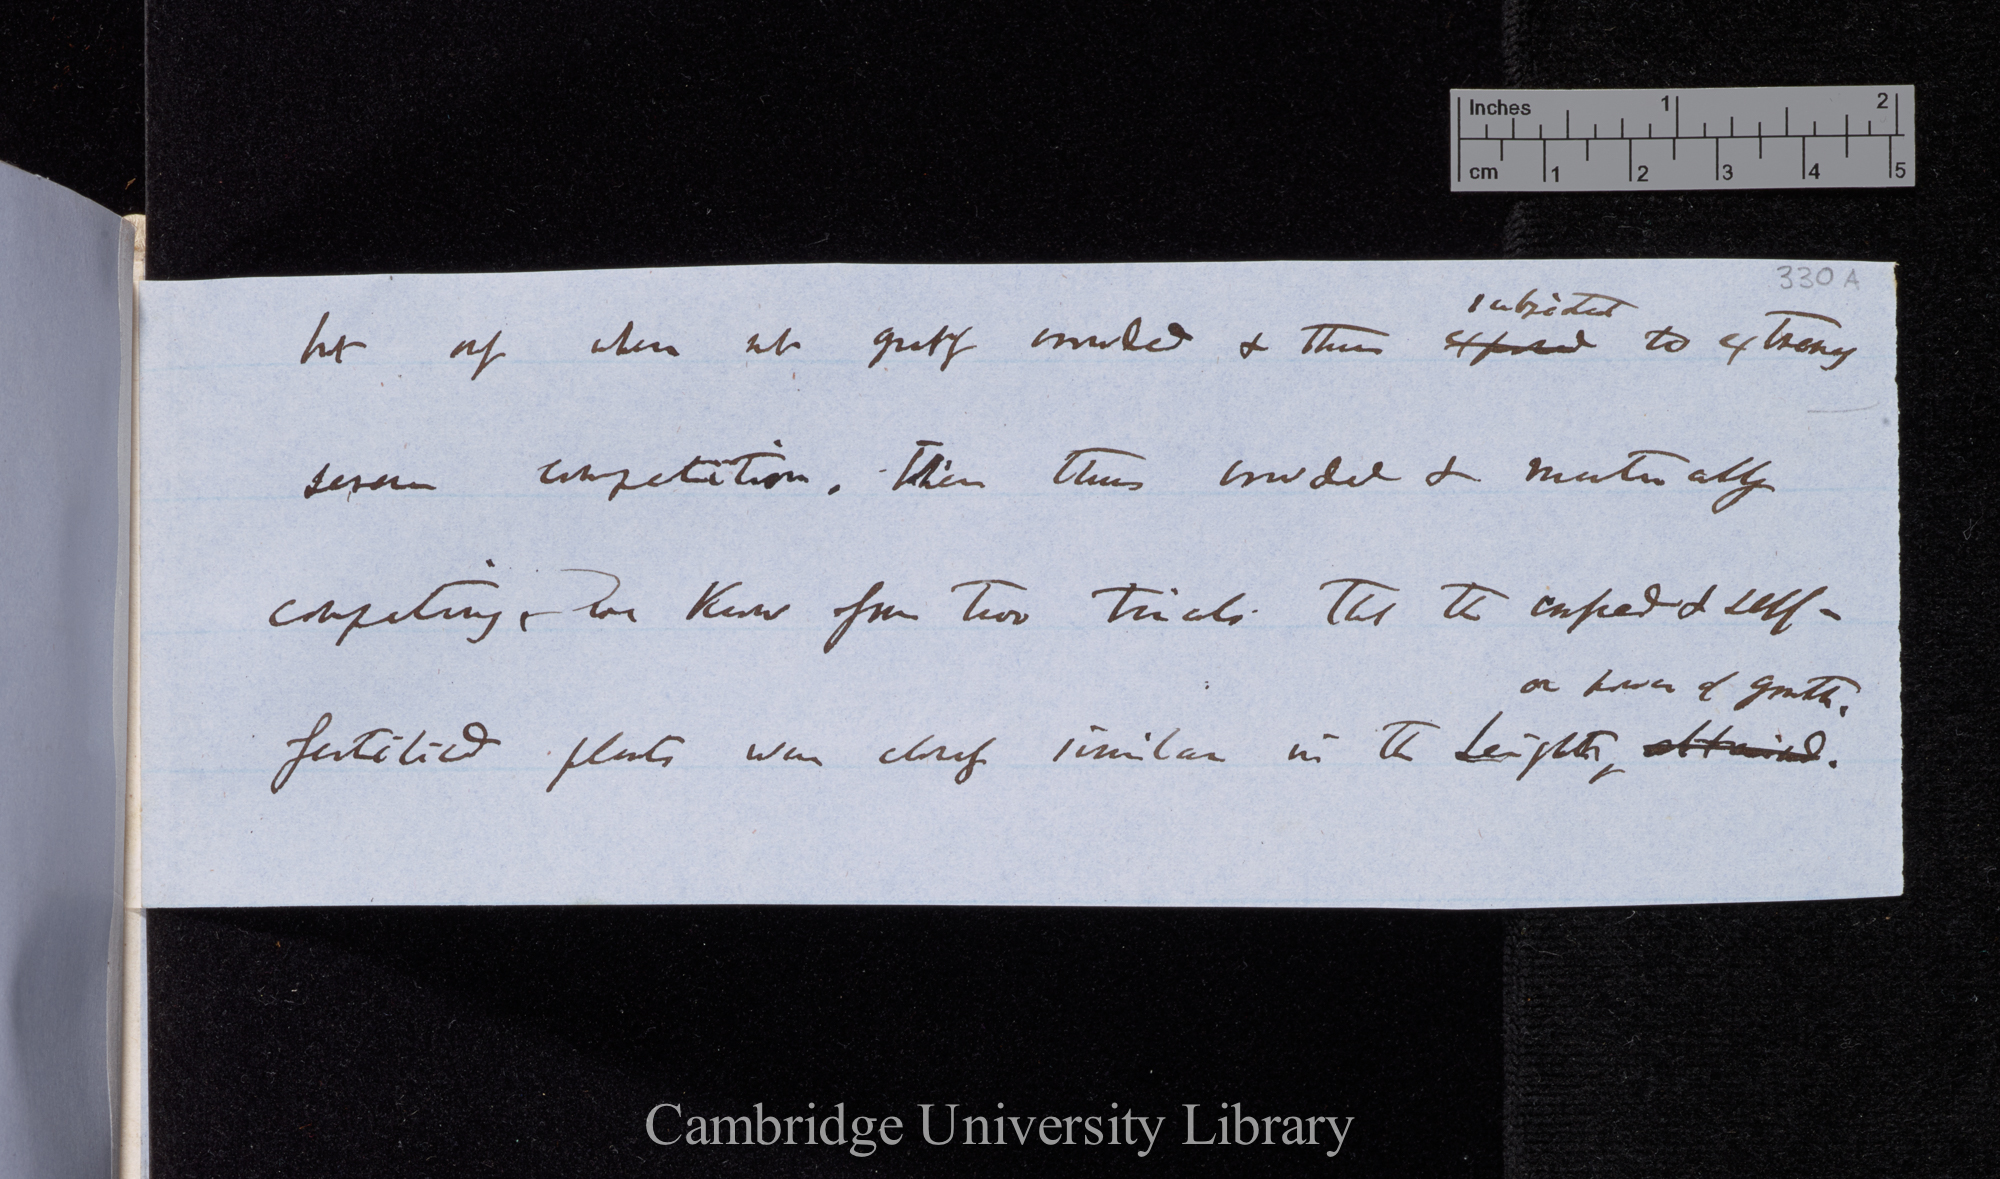 Inches 1 2
cm 1 2 3 4 5
330 A
subjected
but only when not greatly crowded & thus exposed to extremely
severe competition. When thus crowded & mutually
competing, we know from two trials that the crossed & self-
or power of growth.
fertilised plants were closely similar in the heights, obtained.
Cambridge University Library